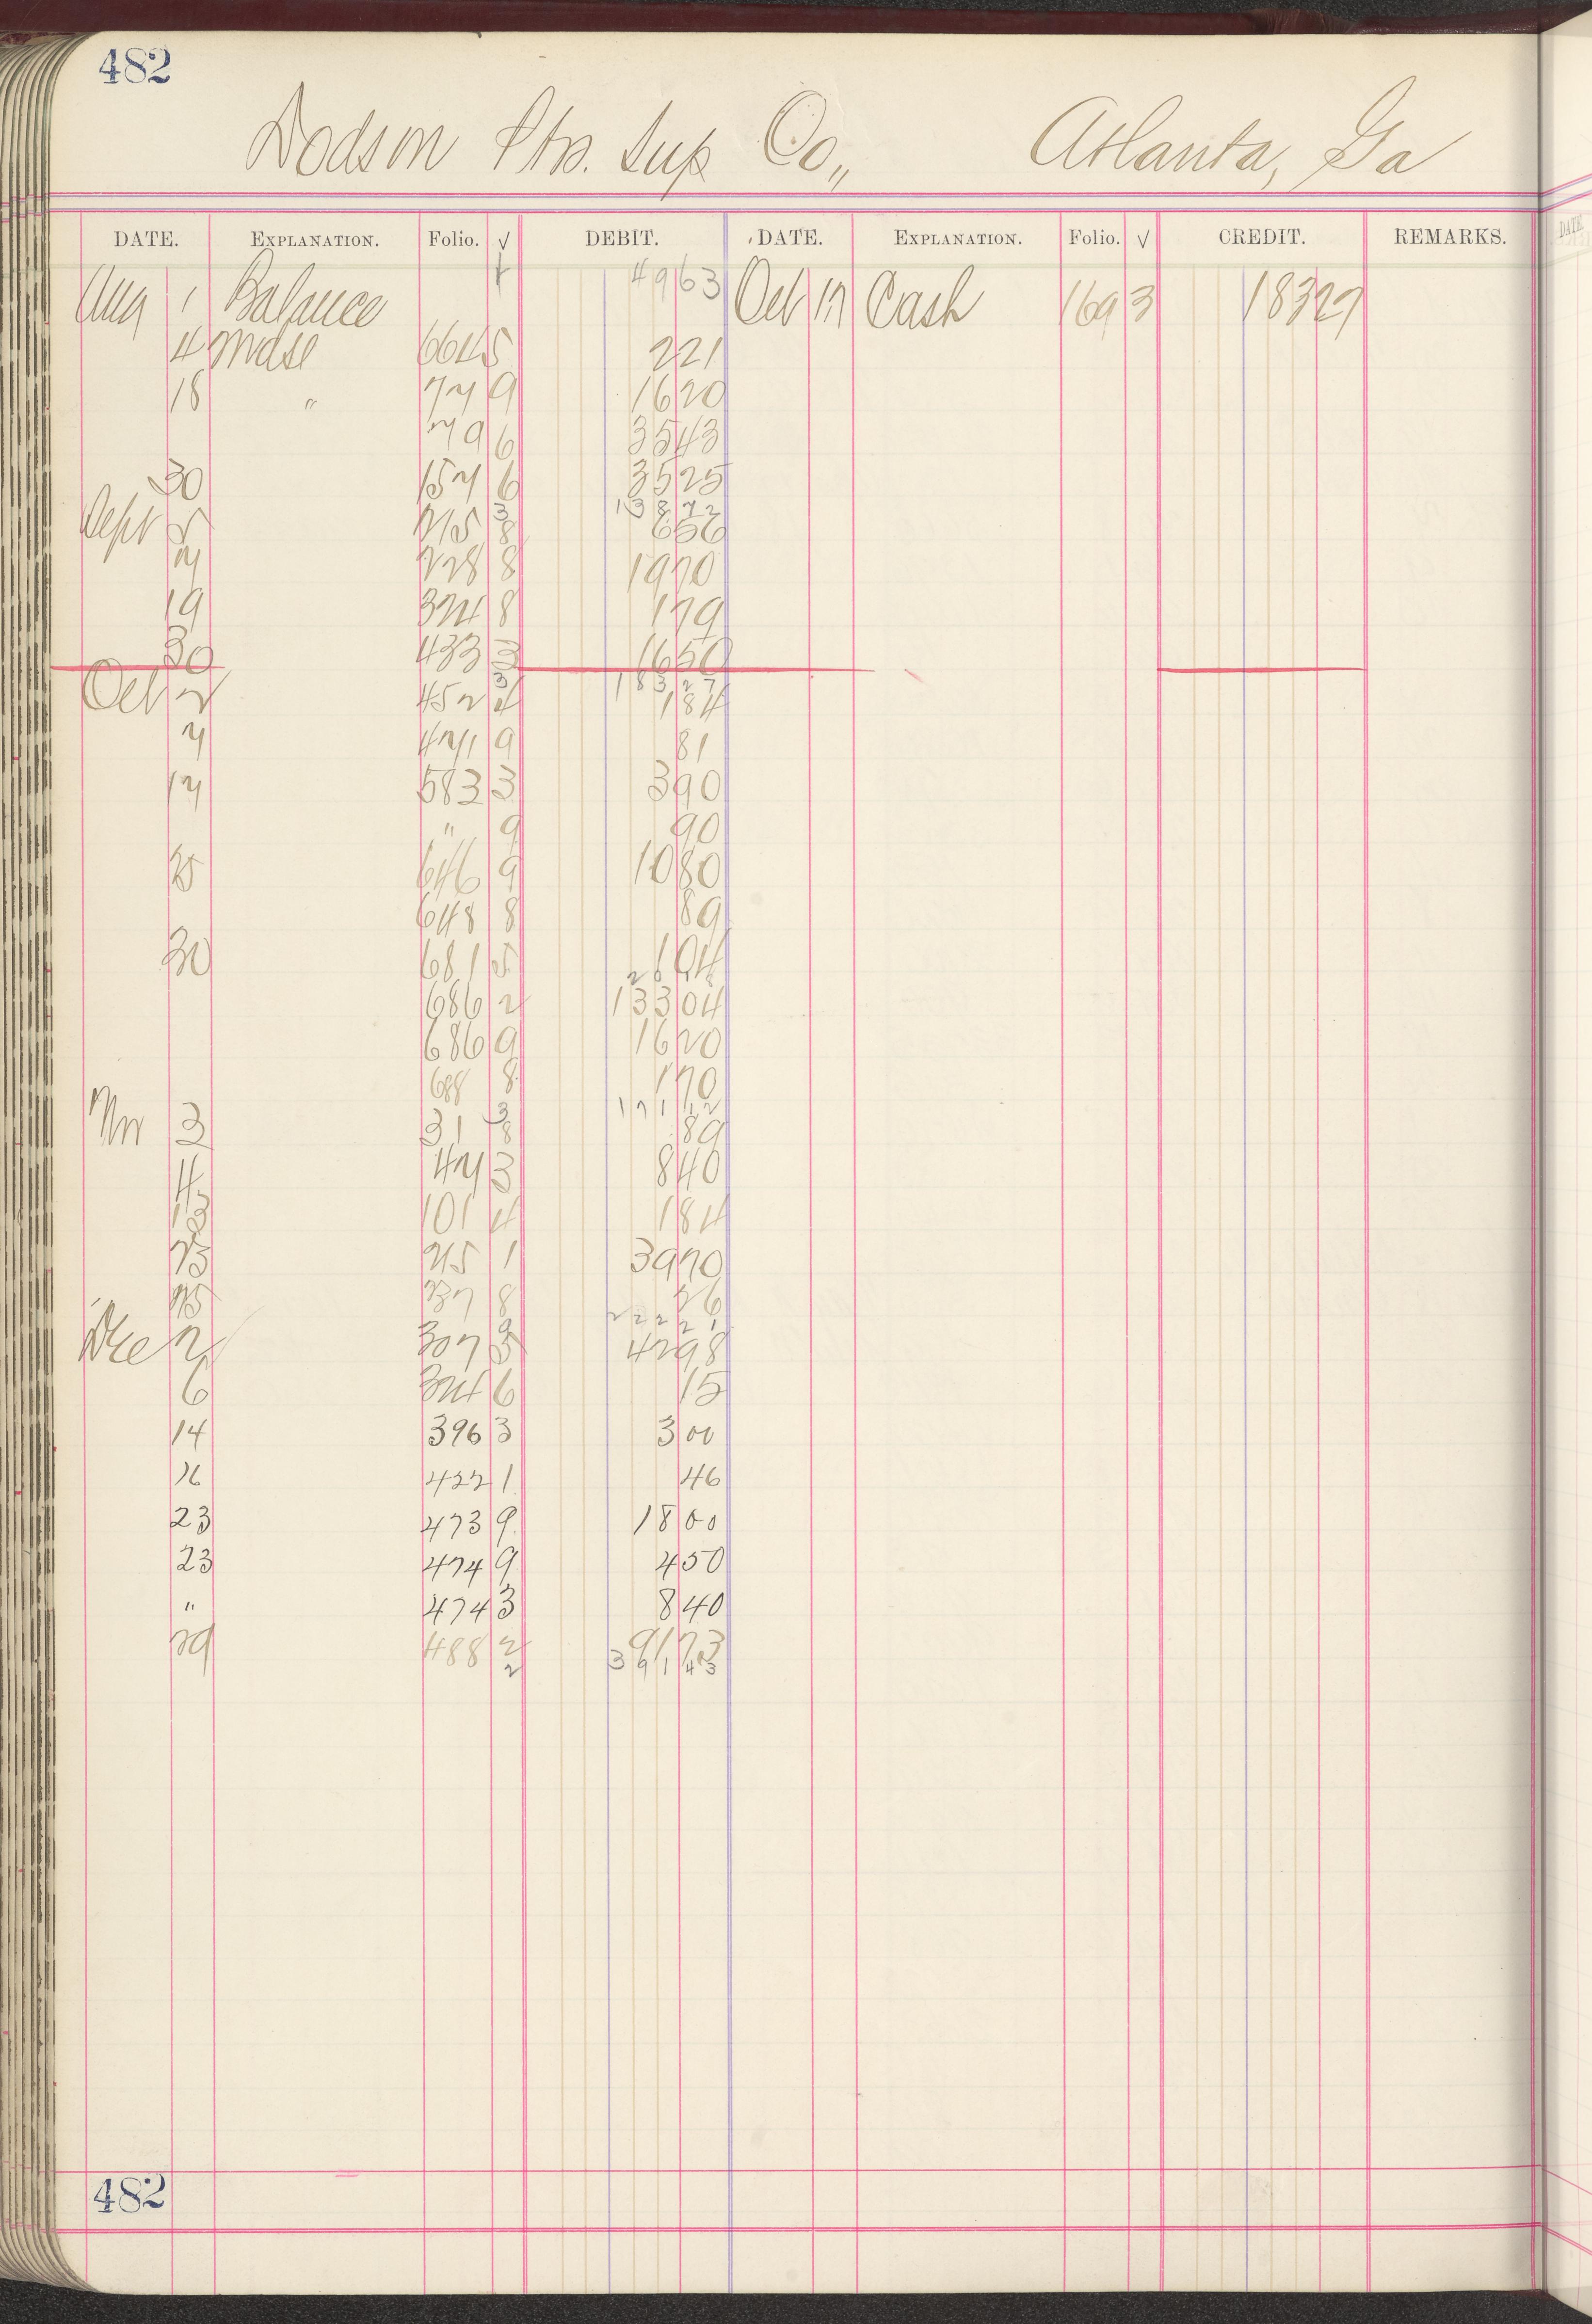 482
Dodson Ptr. Sup Co., Atlanta, Ga
DATE. EXPLANATION. Folio. √ DEBIT. DATE. EXPLANATION. Folio. √ CREDIT. REMARKS.
Aug 1 Balance 49 63 Oct 17 Cash 169 3 183 27
4 Mdse 664 5 2 21
18 " 77 9 16 20
79 6 35 43
30 157 6 35 25
138 72
Sept 5 215 8 6 56
7 228 8 19 70
19 324 8 1 79
30 433 3 16 50
183 27
Oct 2 452 4 1 84
7 471 9 81
17 583 3 3 90
" 9 90
25 646 9 10 80
648 8 89
30 681 5
686 2 133 04
686 9 16 20
688 8 1 70
171 12
Nov 3 31 8 89
4 47 3 8 40
13 101 4 1 84
23 215 1 39 70
25 237 8 26
222 21
Dec 2 307 3 42 98
6 324 6 15
14 396 3 3 00
16 422 1 46
23 473 9 18 00
23 474 9 4 50
" 474 3 8 40
29 488 2 91 73
391 43
482